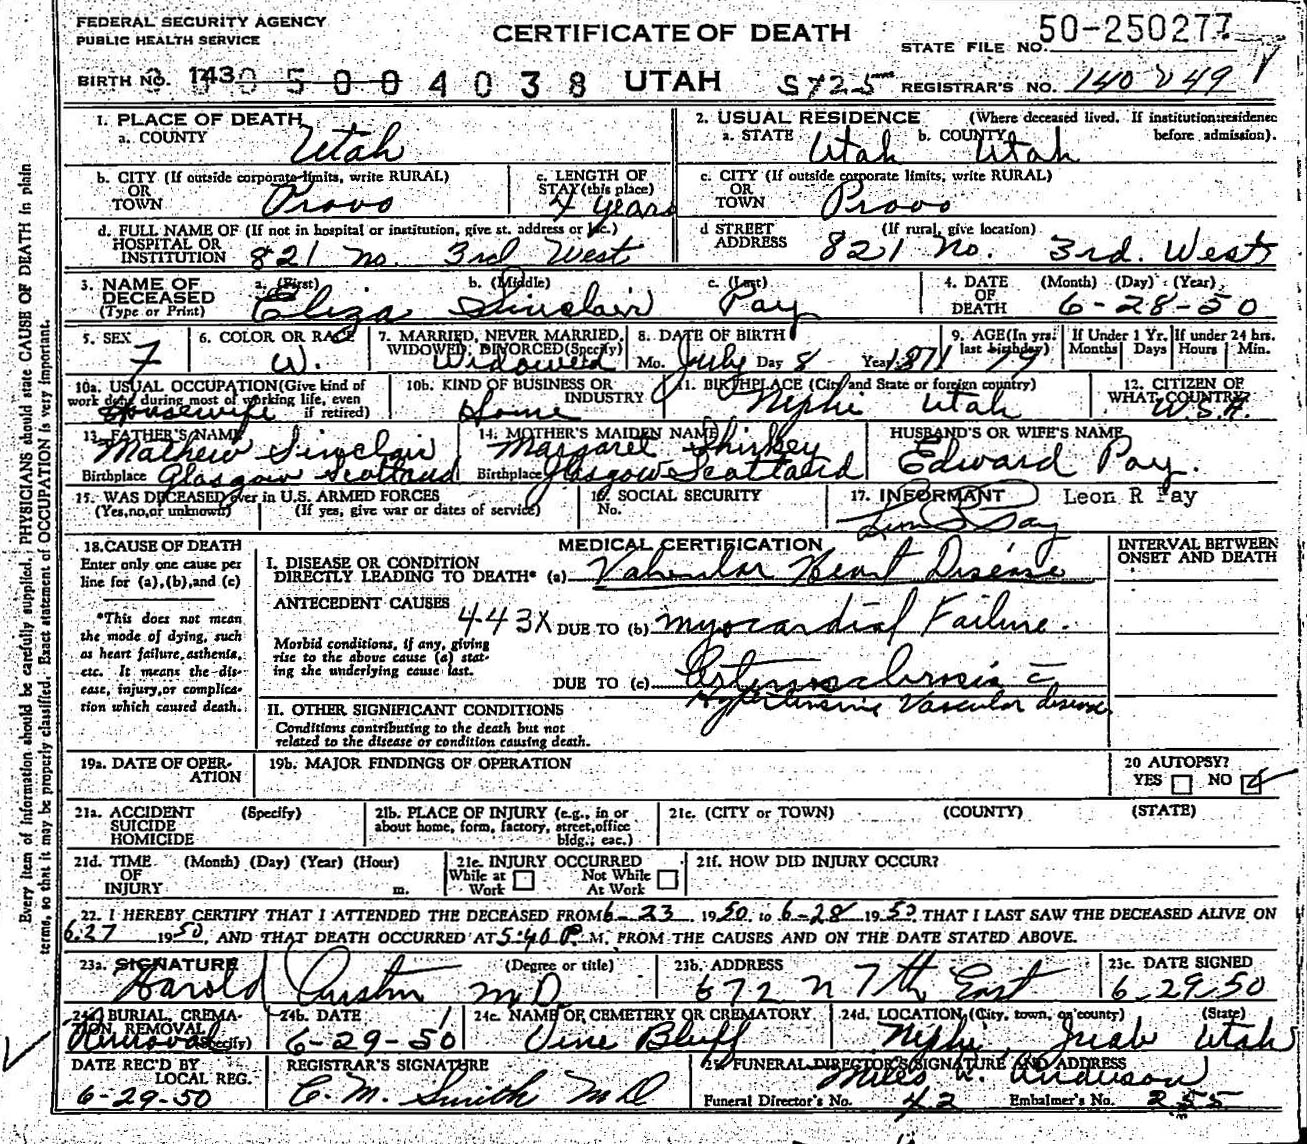 FEDERAL SECURITY AGENCY
PUBLIC HEALTH SERVICE
CERTIFICATE OF DEATH
STATE FILE NO. 50-250277
BIRTH NO. 143 0 5 0 0 4 0 3 8 UTAH S725 REGISTRAR'S NO. 140 849
1. PLACE OF DEATH
a. COUNTY Utah
2. USUAL RESIDENCE (Where deceased lived. If institution: residence before admission).
a. STATE Utah b. COUNTY Utah
b. CITY (If outside corporate limits, write RURAL)
OR
TOWN Provo
c. LENGTH OF
STAY (this place)
4 years
c. CITY (If outside corporate limits, write RURAL)
OR
TOWN Provo
d. FULL NAME OF (If not in hospital or institution, give st. address or loc.)
HOSPITAL OR
INSTITUTION 821 No. 3rd West
d STREET (If rural, give location)
ADDRESS 821 No. 3rd. West
3. NAME OF
DECEASED
(Type or Print)
a. (First) b. (Middle) c. (Last)
Eliza Sinclair Pay
4. DATE (Month) (Day) (Year)
OF
DEATH 6-28-50
5. SEX
F
6. COLOR OR RACE
W.
7. MARRIED, NEVER MARRIED,
WIDOWED, DIVORCED (Specify)
Widowed
8. DATE OF BIRTH
Mo. July Day 8 Year 1871
9. AGE (In yrs.
last birthday)
If Under 1 Yr.
Months Days
If under 24 hrs.
Hours Min.
10a. USUAL OCCUPATION (Give kind of
work done during most of working life, even
if retired)
Housewife
10b. KIND OF BUSINESS OR
INDUSTRY
Home
11. BIRTHPLACE (City and State or foreign country)
Nephi Utah
12. CITIZEN OF
WHAT COUNTRY?
U.S.A.
13. FATHER'S NAME
Mathew Sinclair
Birthplace Glasgow Scotland
14. MOTHER'S MAIDEN NAME
Margaret Shirkey
Birthplace Glasgow Scotland
HUSBAND'S OR WIFE'S NAME
Edward Pay.
15. WAS DECEASED ever in U.S. ARMED FORCES
(Yes, no, or unknown) (If yes, give war or dates of service)
16. SOCIAL SECURITY
No.
17. INFORMANT Leon R Pay
Leon R Pay
18. CAUSE OF DEATH
Enter only one cause per
line for (a), (b), and (c)
*This does not mean
the mode of dying, such
as heart failure, asthenia,
etc. It means the dis-
ease, injury, or complica-
tion which caused death.
MEDICAL CERTIFICATION
INTERVAL BETWEEN
ONSET AND DEATH
I. DISEASE OR CONDITION
DIRECTLY LEADING TO DEATH* (a) Valvular Heart Disease
ANTECEDENT CAUSES
443X DUE TO (b) myocardial Failure.
Morbid conditions, if any, giving
rise to the above cause (a) stat-
ing the underlying cause last.
DUE TO (c) Arteriosclerosis c̄
Hypertensive Vascular disease
II. OTHER SIGNIFICANT CONDITIONS
Conditions contributing to the death but not
related to the disease or condition causing death.
19a. DATE OF OPER-
ATION
19b. MAJOR FINDINGS OF OPERATION
20 AUTOPSY?
YES NO
21a. ACCIDENT (Specify)
SUICIDE
HOMICIDE
21b. PLACE OF INJURY (e.g., in or
about home, form, factory, street, office
bldg.; eac.)
21c. (CITY or TOWN) (COUNTY) (STATE)
21d. TIME (Month) (Day) (Year) (Hour)
OF
INJURY m.
21e. INJURY OCCURRED
While at Work Not While At Work
21f. HOW DID INJURY OCCUR?
22. I HEREBY CERTIFY THAT I ATTENDED THE DECEASED FROM 6-23 1950, to 6-28 1950, THAT I LAST SAW THE DECEASED ALIVE ON
6.27 1950, AND THAT DEATH OCCURRED AT 5:40 P.M. FROM THE CAUSES AND ON THE DATE STATED ABOVE.
23a. SIGNATURE (Degree or title)
Harold Austin M.D.
23b. ADDRESS
672 N 7th East
23c. DATE SIGNED
6-29-50
24a. BURIAL, CREMA-
TION, REMOVAL (Specify)
Removal
24b. DATE
6-29-50
24c. NAME OF CEMETERY OR CREMATORY
Vine Bluff
24d. LOCATION (City, town, or county) (State)
Nephi Juab Utah
DATE REC'D BY
LOCAL REG.
6-29-50
REGISTRAR'S SIGNATURE
C. M. Smith M D
25. FUNERAL DIRECTOR'S SIGNATURE AND ADDRESS
Miles Anderson
Funeral Director's No. 42 Embalmer's No. 255
Every item of information should be carefully supplied. PHYSICIANS should state CAUSE OF DEATH in plain
terms, so that it may be properly classified. Exact statement of OCCUPATION is very important.